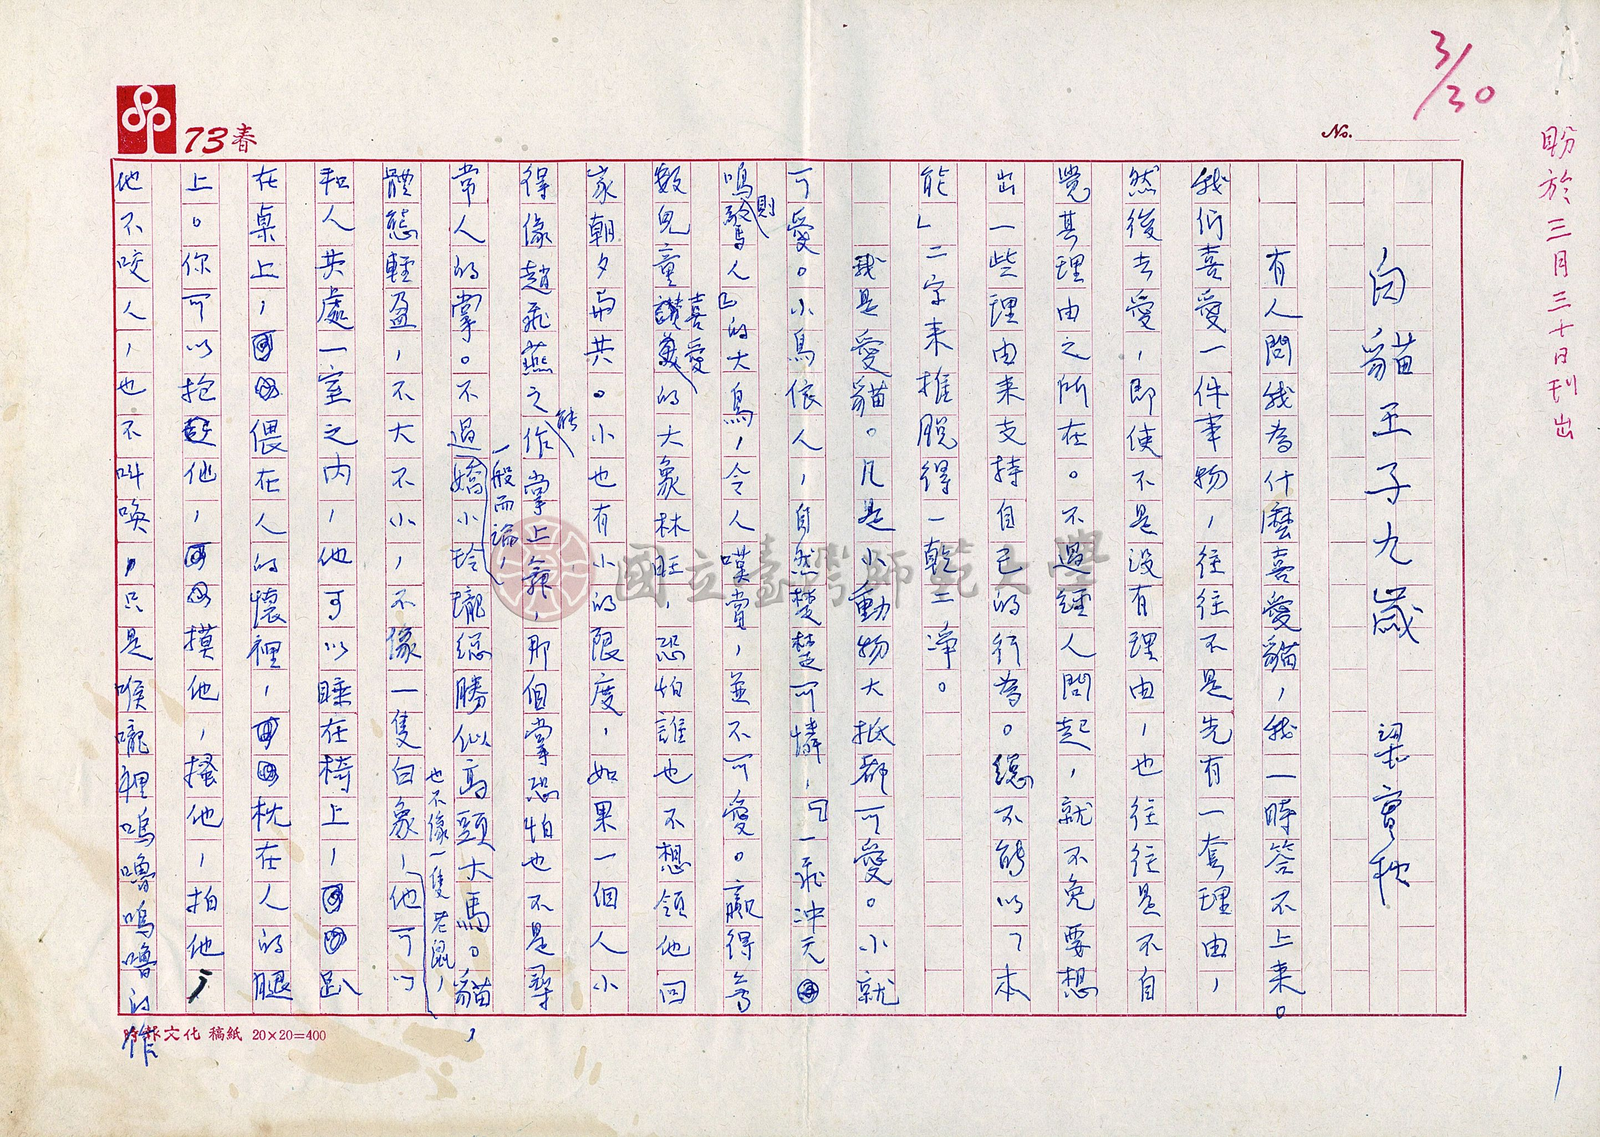 3/30
盼於三月三十日刊出
73春
No.
白貓王子九歲　梁實秋
有人問我為什麼喜愛貓，我一時答不上来。
我们喜爱一件事物，往往不是先有一套理由，
然後去爱，即使不是没有理由，也往往是不自
覺其理由之所在。不過經人問起，就不免要想
出一些理由来支持自己的行為。總不能以「本
能」二字来推脱得一乾二淨。
我是愛貓。凡是小動物大抵都可愛。小就
可愛。小鳥依人，自然楚楚可憐，「一飛沖天
鳴則驚人」的大鳥，令人嘆賞，並不可愛。贏得無
數兒童喜愛的大象林旺，恐怕誰也不想領他回
家朝夕與共。小也有小的限度，如果一個人小
得像趙飛燕之能作掌上舞，那個掌恐怕也不是尋
常人的掌。不過一般而論，嬌小玲瓏總勝似高頭大馬。貓，
體態輕盈，不大不小，不像一隻白象，也不像一隻老鼠，他可以
和人共處一室之内，他可以睡在椅上，趴
在桌上，偎在人的懷裡，枕在人的腿
上。你可以抱他，摸他，搔他，拍他，
他不咬人，也不叫喚，只是喉嚨裡嗚嚕嗚嚕的作
時報文化 稿紙 20×20=400
1
國立臺灣師範大學